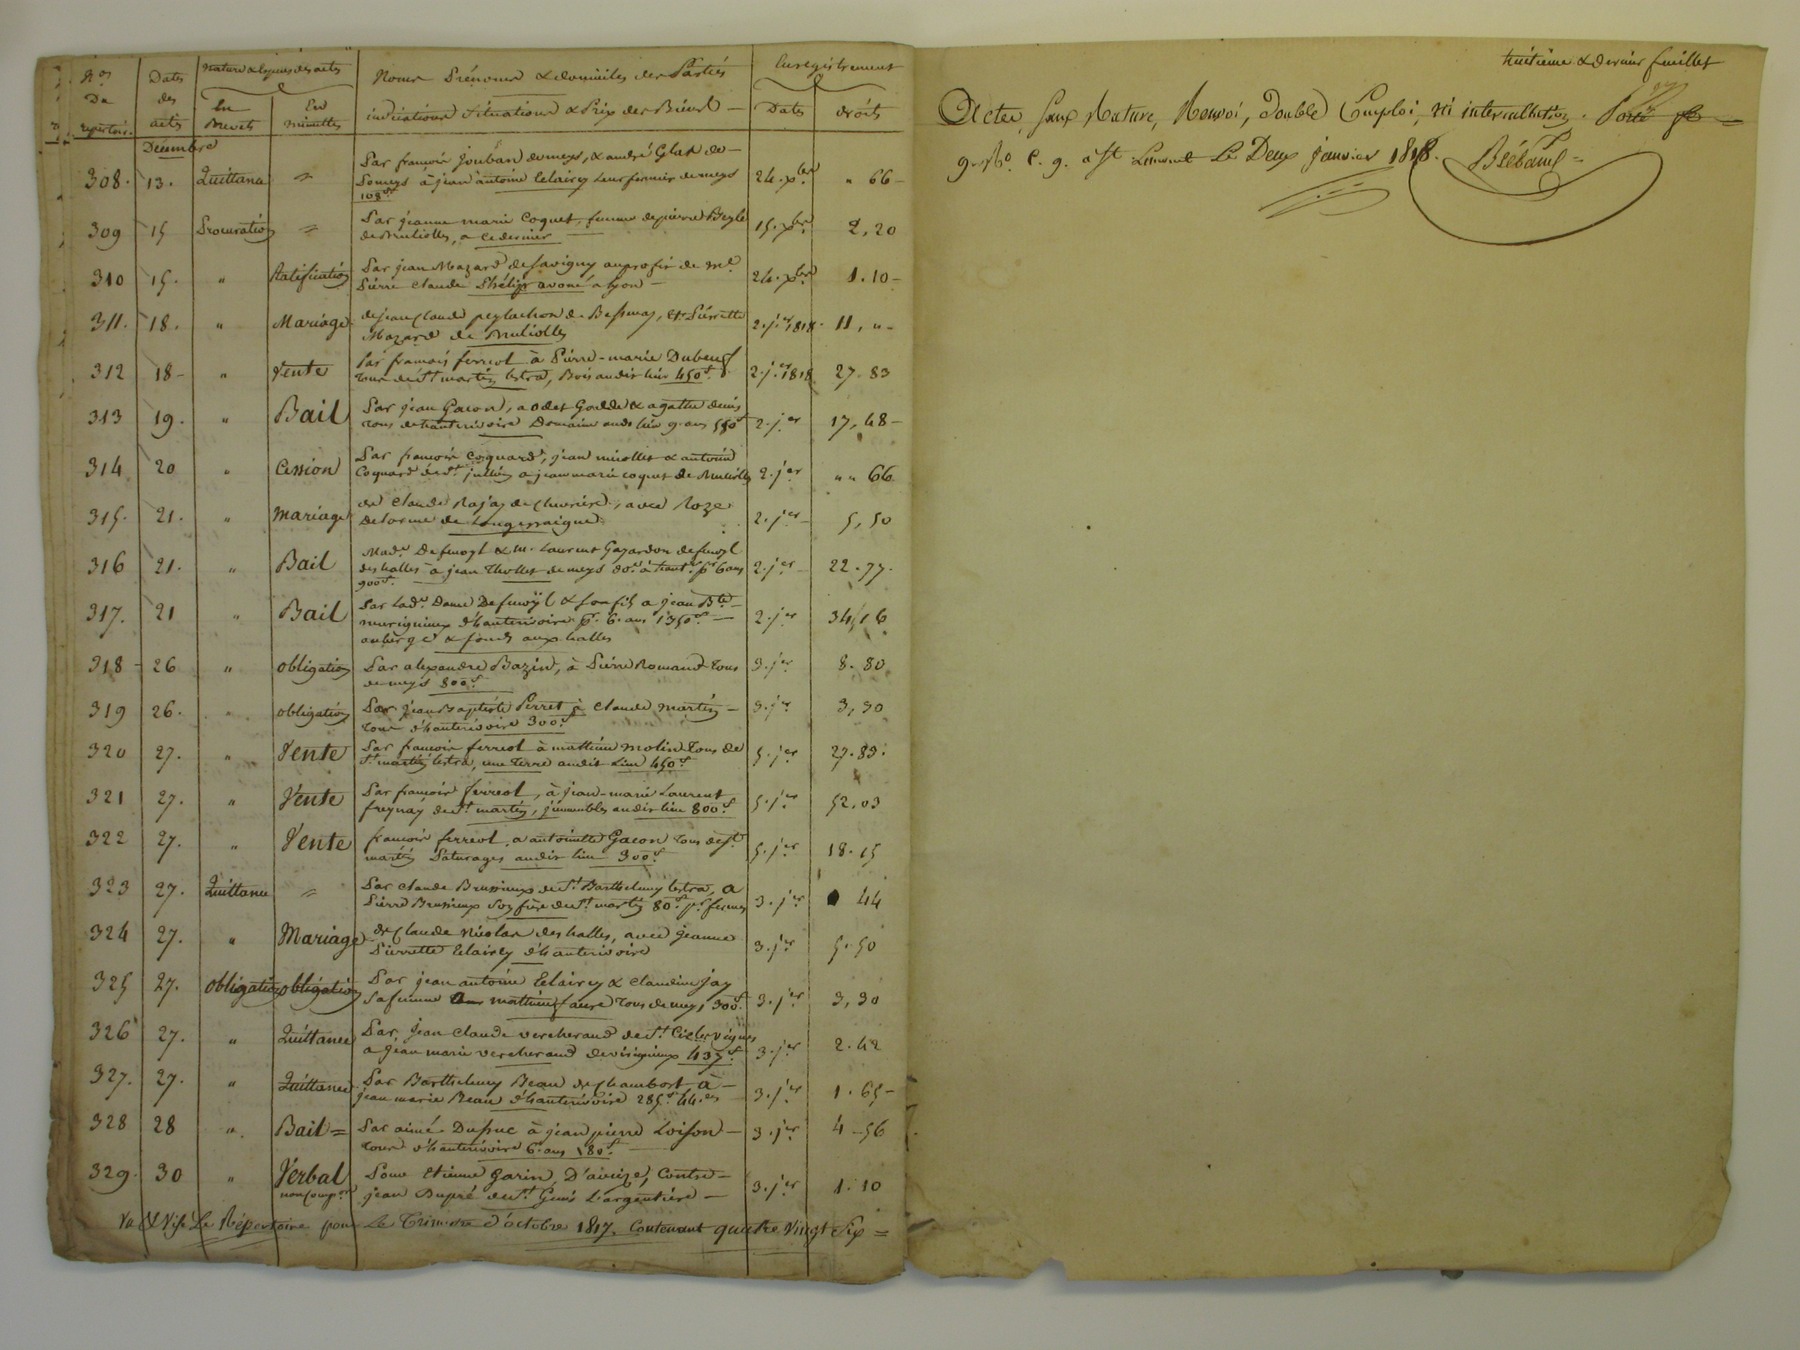 Nos Dates Nature & especes des actes Noms Prénoms & domiciles des Parties Enregistrement
Du des En En indications Situations & Prix des Biens Dates droits
repertoire actes Brevets minuttes
Décembre
308. 13. Quittance " Par françois joubard demeys, & andré Glas de
Someys à jean antoine leur fermier demeys 24. xbre " 66
108f
309 15 Procuration " Par jeanne marie Coquet, femme depierre
de Bruliolles, a cedernier 15. xbre 2,20
310 15. " Ratification Par jean Mazard de savigny auprofit de Me
Pierre Claude avoué a lyon 24. xbre 1.10
311. 18. " Mariage de jean Claude de Bessenay, et Pierrette
Mazard de Bruliolles 2. jer 1818. 11, "
312 18 " Vente Par francois ferreol à Pierre-marie Dubeuf
tous de St martin lestra, Bois audit lieu 450f 2. jer 1818 27.83
313 19. " Bail Par jean Gacon, a odet & agathe denis
tous dehauterivoire Domaine audt lieu 9. ans 550f 2. jer 17,48
314 20 " Cession Par francois Coquard, jean & antoine
Coquard de St jullien a jean marie coquet de Bruliolles 2. jer " " 66
315. 21. " Mariage de Claude Rajay de , avec Roze
Delorme de Longessaigne 2. jer 5,50
316 21. " Bail Made & M. Laurent
des halles à jean Thollet de meys pr 6 ans 2. jer 22.77.
900f
317. 21 " Bail Par lade Dame & son fils a jean Bte
d'hauterivoire pr. 6. ans 1350f 2. jer 34,16
auberge & fonds aux halles
318 26 " obligation Par alexandre Bazin, à Pierre Romand tous
de meys 800f 3. jer 8.80
319 26. " obligation Par jean Baptiste Perret à Claude martin
tous d'hauterivoire 300f 3. jer 3,30
320 27. " Vente Par francois ferreol à mathieu molin tous de
St martin lestra, une terre audit Lieu 450f 5. jer 27.83.
321 27. " Vente Par francois ferreol, à jean-marie Laurent
de St martin, immeubles audit lieu 800f 5. jer 52.03
322 27. " Vente francois ferreol, a antoinette Gacon tous de St
martin Paturages audit lieu 300f 5. jer 18.15
323 27. Quittance " Par Claude Brussieux de St Barthelemy lestra, a
Pierre Brussieux son frère de St martin 80f pr fermes 3. jer 44
324 27. " Mariage de Claude Nicolas des halles, avec jeanne
Pierrette d'hauterivoire 3. jer 5.50
325 27. obligation obligation Par jean antoine & Claudine jay
Safemme mathieu faure tous demeys 300f 3. jer 3,30
326 27. " Quittance Par jean Claude vercherand de St
a jean marie vercherand 437f 3. jer 2.42
327. 27. " Quittance Par Barthelemy Beau de Chambost à
jean marie Beau d'hauterivoire 285f 44 3. jer 1.65
328 28 " Bail = Par aimé à jean pierre Loison
tous d'hauterivoire 6. ans 180f 3. jer 4 56
329. 30 " Verbal Pour Etienne Garin, D'aveize, Contre
jean Dupré de St Genis L'argentière 3. jer 1.10
Vu & Visé Le Répertoire pour Le Trimestre d'octobre 1817, Contenant quatre vingt Six =
huitieme & dernier feuillet
Actes, Sans Rature, Renvoi, Double Emploi, ni intercallation.
a St Laurent Le Deux janvier 1818.